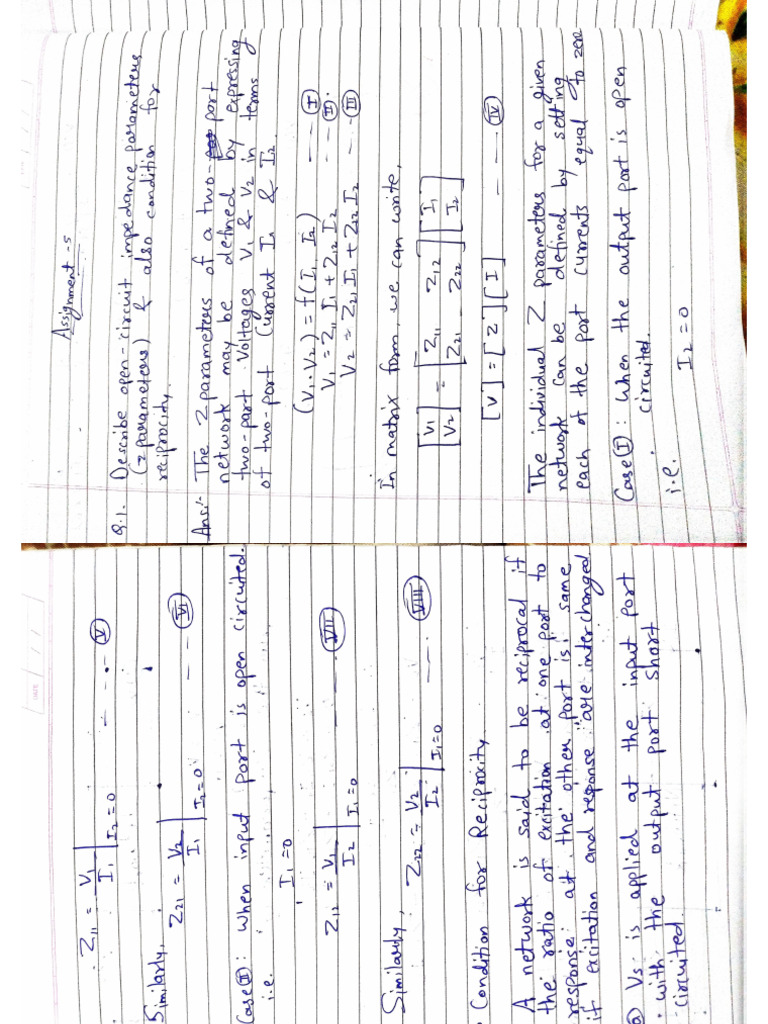 Assignment-5
Q.1. Describe open-circuit impedance parameters
(z parameters) & also condition for
reciprocity.
Ans:- The Z parameters of a two-port
network may be defined by expressing
two-port voltages V1 & V2 in terms
of two-port Current I1 & I2.
(V1. V2) = f(I1, I2) --- (I)
V1 = Z11 I1 + Z12 I2 --- (II).
V2 = Z21 I1 + Z22 I2 --- (III)
In matrix form, we can write,
[V1 V2] = [Z11 Z12 Z21 Z22] [I1 I2]
[V] = [Z] [I] ---- (IV)
The individual Z parameters for a given
network can be defined by setting
each of the port currents equal to zero
Case(I): When the output port is open
circuited.
i.e. I2 = 0
Z11 = V1/I1 | I2=0 --- (V)
Similarly,
Z21 = V2/I1 | I2=0 -- (VI)
Case(II): When input port is open circuited.
i.e. I1 = 0
Z12 = V1/I2 | I1=0 --- (VII)
Similarly,
Z22 = V2/I2 | I1=0 --- (VIII)
Condition for Reciprocity
A network is said to be reciprocal if
the ratio of excitation at one port to
response at the other port is same
if excitation and response are interchanged
(a) Vs is applied at the input port
with the output port short
circuited.